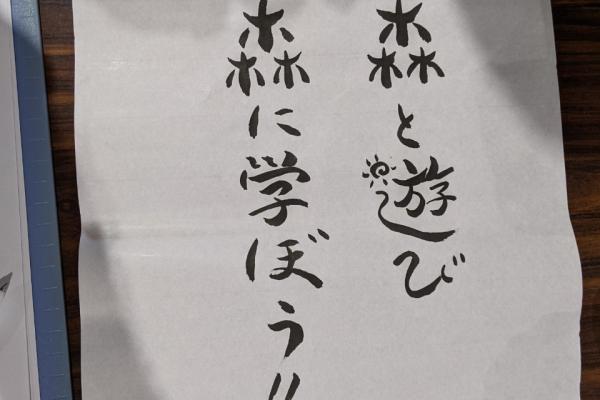 森と遊び
森に学ぼう!!